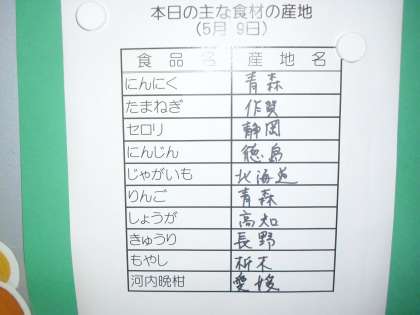 本日の主な食材の産地
(5月 9日)
食品名 産地名
にんにく 青森
たまねぎ 佐賀
セロリ 静岡
にんじん 徳島
じゃがいも 北海道
りんご 青森
しょうが 高知
きゅうり 長野
もやし 栃木
河内晩柑 愛媛